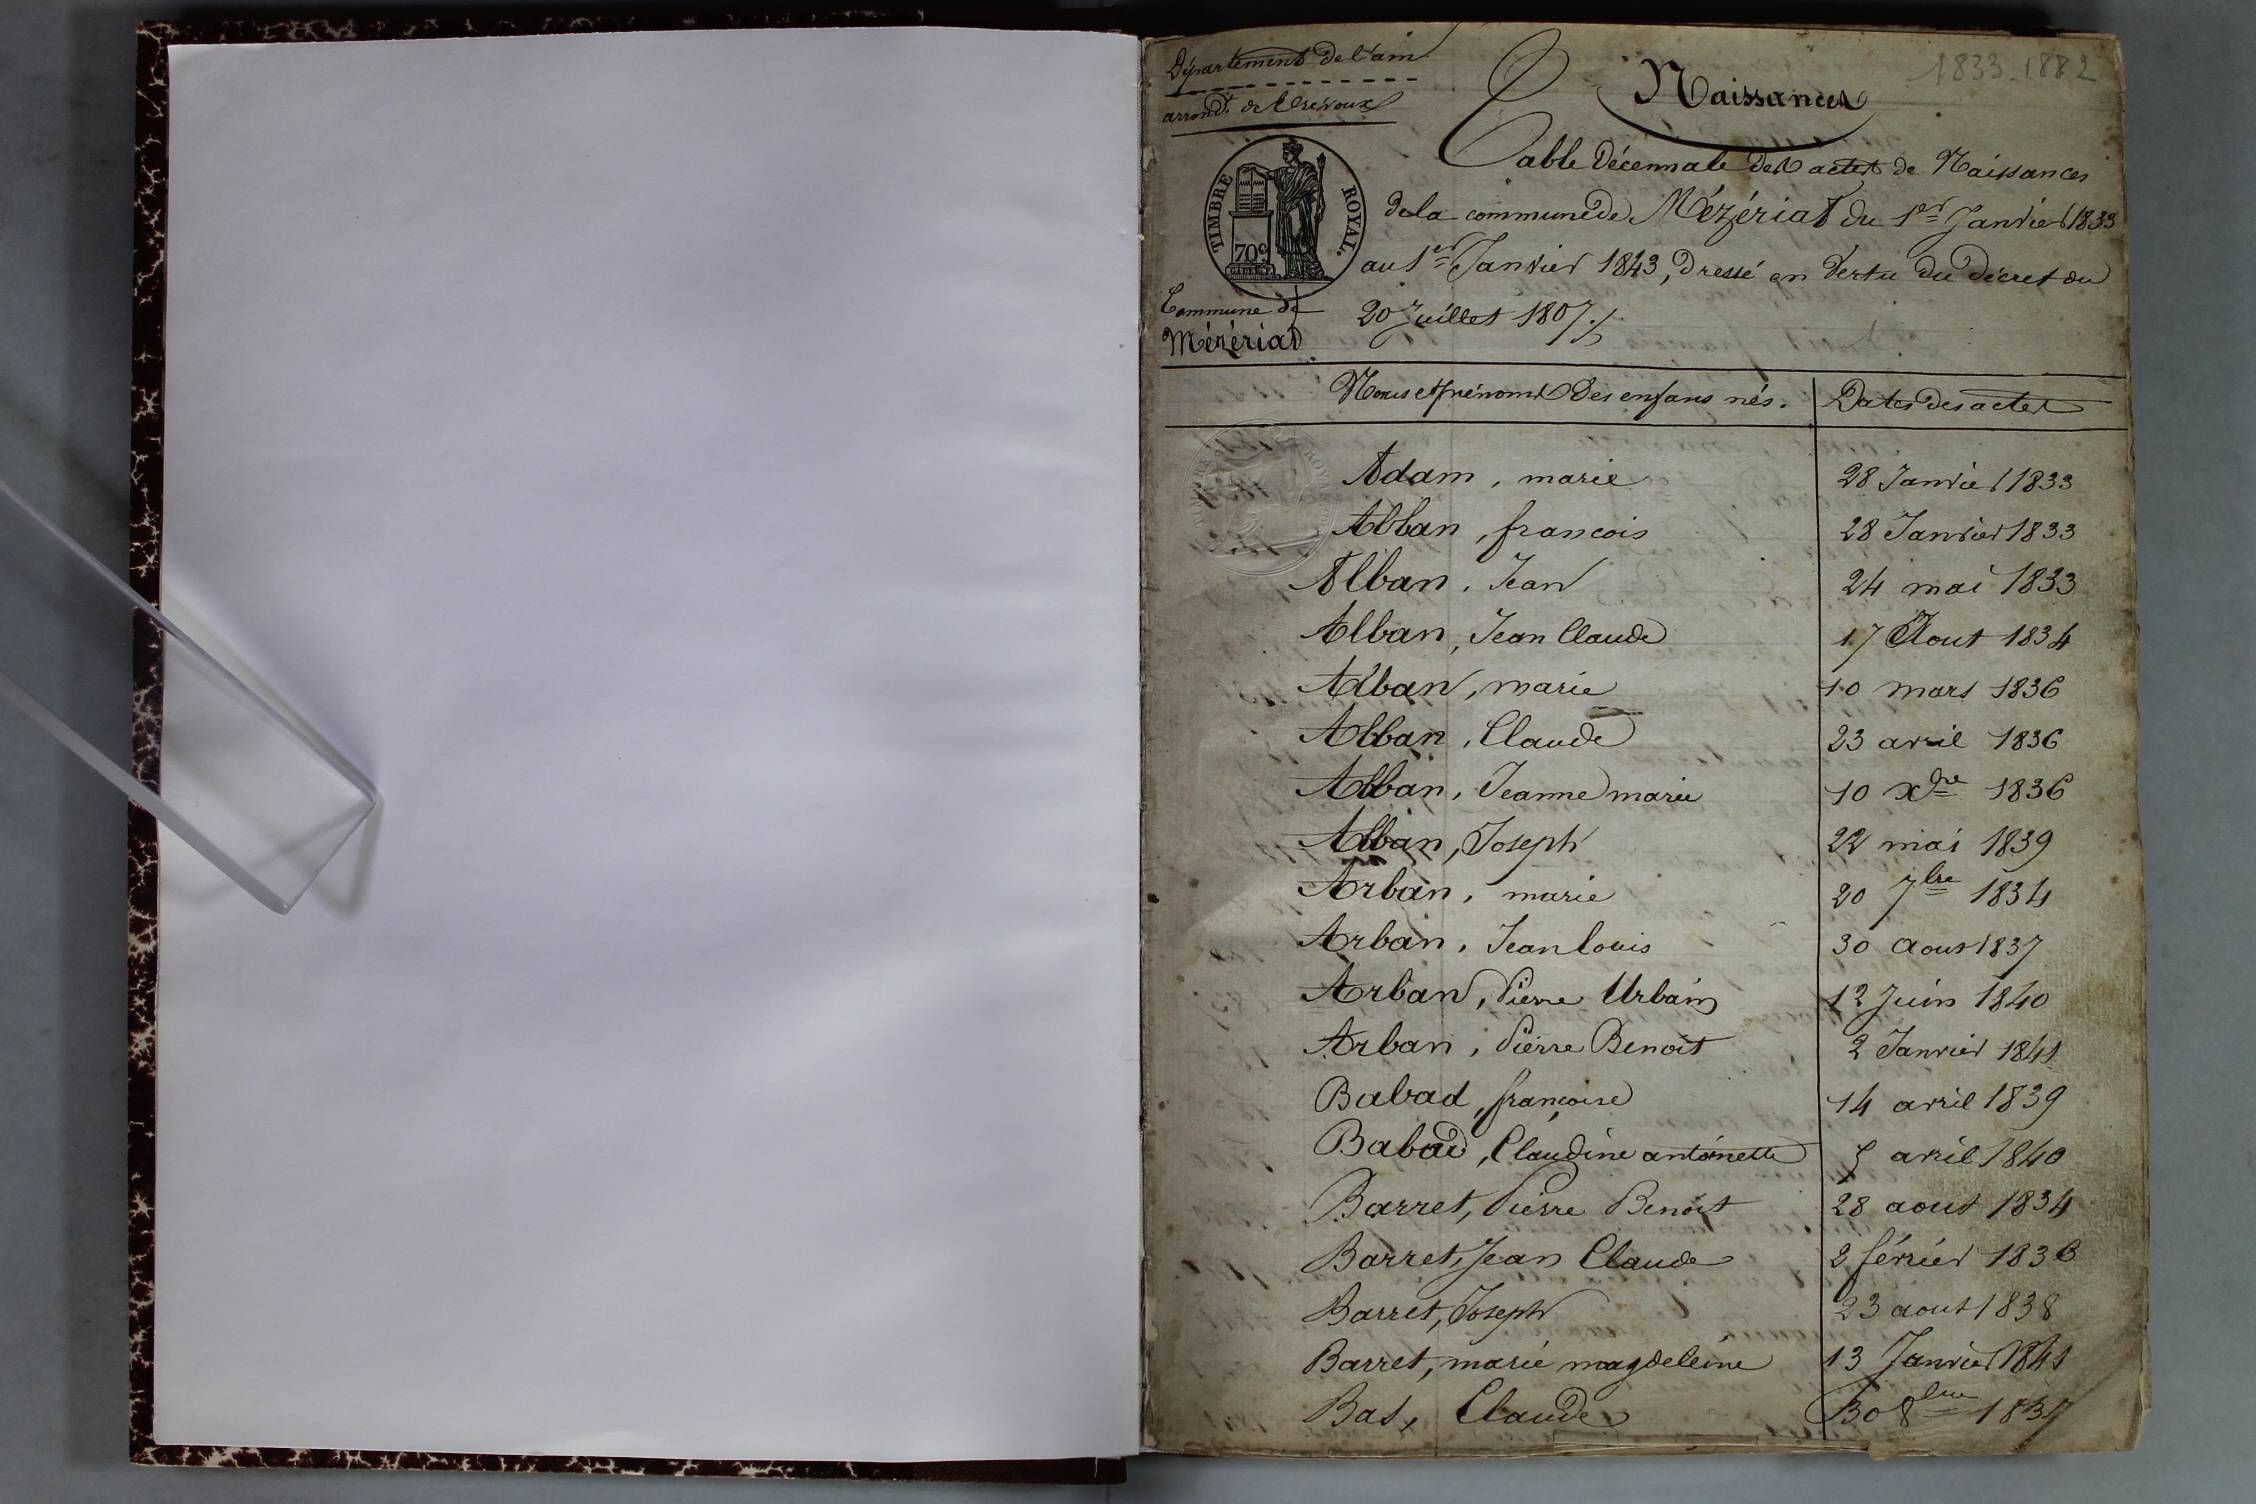 1833-1882
Département de l'ain
arrond.t de Trevoux
Naissances
TIMBRE ROYAL.
70c
Commune de
Mézériat
Table Décennale des actes de Naissances
de la commune de Mézériat du 1er Janvier 1833
au 1er Janvier 1843, dressé en vertu du décret du
20 Juillet 1807./.
Noms et prénoms des enfans nés. Dates des actes
Adam, marie 28 Janvier 1833
Alban, francois 28 Janvier 1833
Alban, Jean 24 mai 1833
Alban, Jean Claude 17 Aout 1834
Alban, marie 10 mars 1836
Alban, Claude 23 avril 1836
Alban, Jeanne marie 10 Xbre 1836
Alban, Joseph 22 mai 1839
Arban, marie 20 7bre 1834
Arban, Jean louis 30 aout 1837
Arban, Pierre Urbain 12 Juin 1840
Arban, Pierre Benoit 2 Janvier 1841
Babad, françoise 14 avril 1839
Babad, Claudine antoinette 5 avril 1840
Barret, Pierre Benoit 28 aout 1834
Barret, Jean Claude 2 février 1836
Barret, Joseph 23 aout 1838
Barret, marie magdeleine 13 Janvier 1841
Bas, Claude 30 8bre 1837